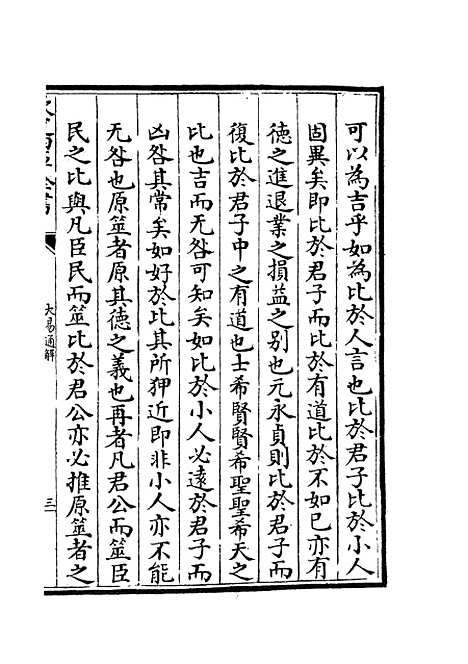 可以為吉乎如為比於人言也比於君子比於小人
固異矣即比於君子而比於有道比於不如已亦有
徳之進退業之損益之别也元永貞則比於君子而
復比於君子中之有道也士希賢賢希聖聖希天之
比也吉而无咎可知矣如比於小人必遠於君子而
凶咎其常矣如好於比其所狎近即非小人亦不能
无咎也原筮者原其徳之義也再者凡君公而筮臣
民之比與凡臣民而筮比於君公亦必推原筮者之
大易通解
三